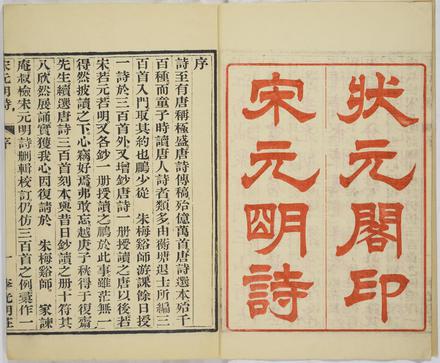 狀元閣印
宋元明詩
序
詩至有唐稱極盛唐詩傳稿殆億萬首唐詩選本殆千
百種而童子時讀唐人詩者類多由蘅塘退士所編三
百首入門取其約也鵬少從 朱梅谿師游課餘日授
一詩於三百首外又增鈔唐詩一册授讀之唐以後若
宋若元若明又各鈔一册授讀之鵬於此事雖茫無一
得然披讀之下心竊好焉弗敢忘越庚子秋得于復齋
先生續選唐詩三百首刻本與昔日鈔讀之册十符其
八欣然展誦實獲我心因復請於 朱梅谿師 家諫
庵叔檢宋元明詩刪輯校訂仍仿三百首之例彙作一
宋元明詩 序 一 李光明莊